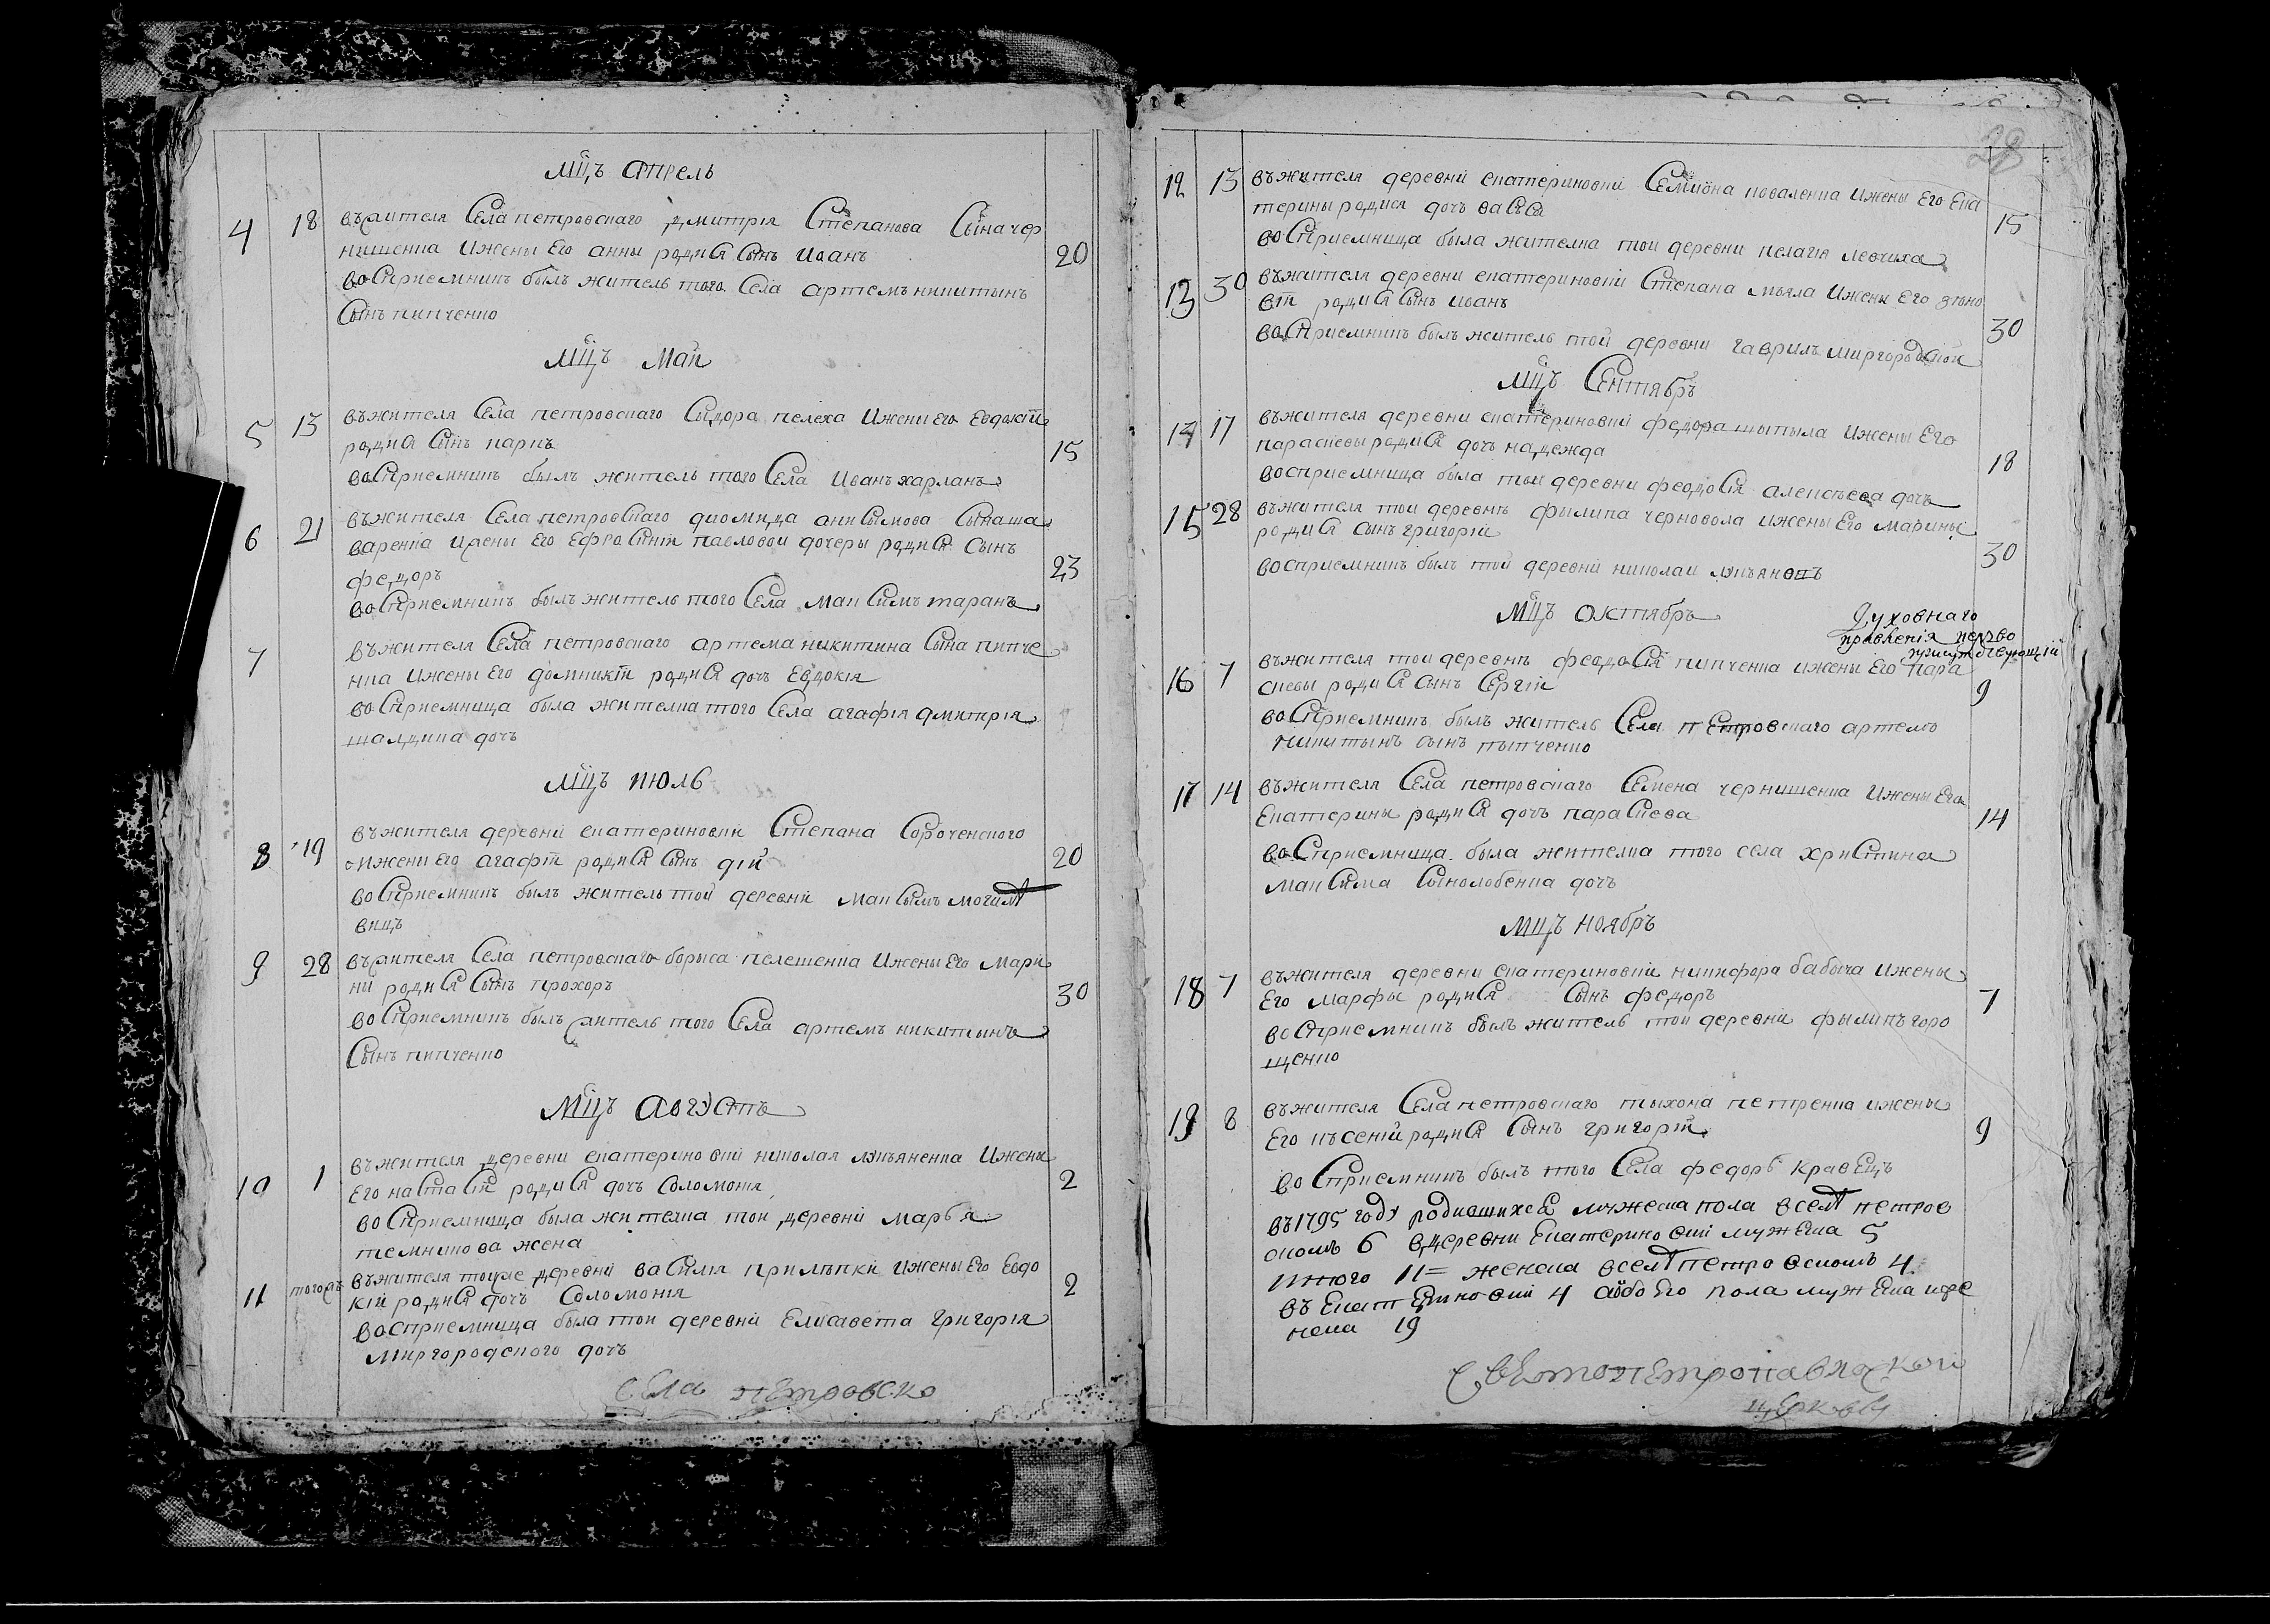 мцъ апрель
4 18 въжителя Села петровскаго дмитрія Степанова Сына чер
нишенка ижены Его анны родися Сынъ иванъ 20
восприемникъ былъ житель того Села артемъ никитынъ
Сынъ пипченко
мцъ маи
5 13 въжителя Села петровскаго Сыдора пелеха ижены его Евдокіи
родися Сынъ карпъ 15
восприемникъ былъ житель того Села иванъ харланъ
6 21 въжителя Села петровскаго диомида анисымова Сына ша
варенка ижены Его Ефросиніи павловои дочеры родися Сынъ
федоръ 23
восприемникъ былъ житель того Села максимъ таранъ
7 въжителя Села петровскаго артема никитина Сына пипче
нка ижены Его домникіи родися дочъ Евдокія
восприемница была жителка того Села агафія дмитрія
шалдина дочъ
мцъ июль
8 19 въжителя деревни екатериновки Степана Сороченского
ижены его агафіи родися Сынъ дій 20
восприемникъ былъ житель той деревни максымъ могиле
вицъ
9 28 въжителя Села петровскаго борыса пелешенка ижены Его мари
ни родися Сынъ прохоръ 30
восприемникъ былъ житель того Села артемъ никитынъ
Сынъ пипченко
мцъ августъ
10 1 въжителя деревни екатериновки николая лукъяненка ижены
Его настасіи родися дочъ соломонія 2
восприемница была жителка тои деревни марья
темникова жена
11 тогожъ въжителя тоиже деревни василія прилъпки ижены Его Евдо
кіи родися дочъ Соломонія 2
восприемница была тои деревни Елисавета григорія
миргородского дочъ
Села петровско
28
12 13 въжителя деревни екатериновки Семиона коваленка ижены Его Ека
терины родися дочъ васса 15
восприемница была жителка тои деревни пелагія левчиха
13 30 въжителя деревни екатериновки Степана мъяла ижены Его зѣно
віи родися Сынъ иванъ
восприемникъ былъ житель той деревни гаврилъ миргородскои 30
мцъ Сентябръ
14 17 въжителя деревни екатериновки федора шыпыла ижены Его
параскевы родися дочъ надежда
восприемница была тои деревни феодосія алексѣева дочъ 18
15 28 въжителя тои деревнѣ филипа черновола ижены Его марины
родися сынъ григорій
восприемникъ былъ той деревни николаи лукъяновъ 30
мцъ октябръ
Духовнаго
правленія перво
присутствующій
16 7 въжителя тои деревнѣ феодосія пипченка ижены Его пара
скевы родися сынъ Сергій 9
восприемникъ былъ житель Села петровскаго артемъ
никитынъ сынъ пыпченко
17 14 въжителя Села петровскаго Семена чернишенка ижены Его
Екатерины родися дочъ параскева 14
восприемница была жителка того села христина
максима Сынолобенка дочъ
мцъ ноябръ
18 7 въжителя деревни екатериновки никифора бабыча ижены
Его марфы родися Сынъ федоръ 7
восприемникъ былъ житель тои деревни филипъ горо
щенко
19 8 въжителя Села петровскаго тыхона петренка ижены
Его ксеніи родися Сынъ григорій 9
восприемникъ былъ того Села федоръ кравецъ
въ 1795 году родившихся мужеска пола вселѣ петров
скомъ 6 вдеревни Екатериновки мужеска 5
итого 11 = женска вселѣ петровскомъ 4
въ Екатериновки 4 аобоего пола мужеска иже
нска 19
Светопетропавлоскои
церкви